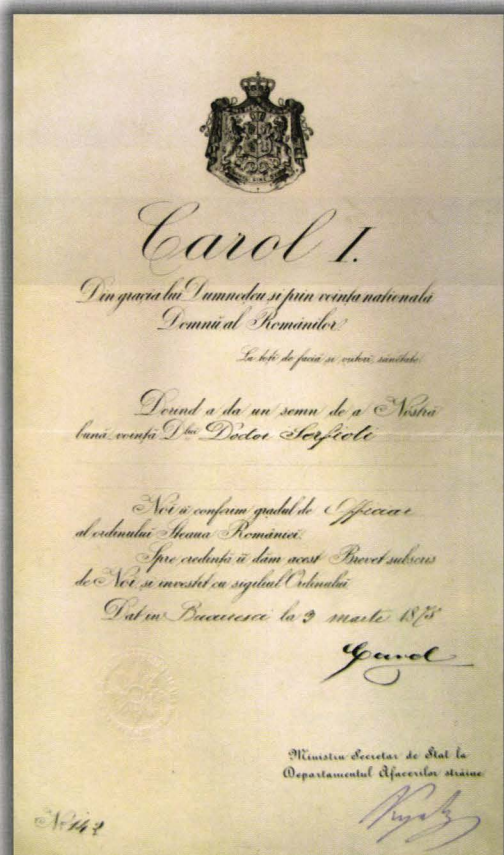 Carol I.
Din gracia lui Dumnedeu si prin vointa natională
Domnŭ al Românilor.
La toti de facia si viitori, sanetate.
Dorind a da un semn de a Nóstră
bună vointă Dlui Doctor Serfioti
Noi ii conferim gradul de Officiar
al ordinului Steaua României.
Spre credintă ii dăm acest Brevet subscris
de Noi si investit cu sigiliul Ordinului
Dat in Bucuresci la 9 marte 1878
Carol
Ministru Secretar de Stat la
Departamentul Afacerilor străine
No 142